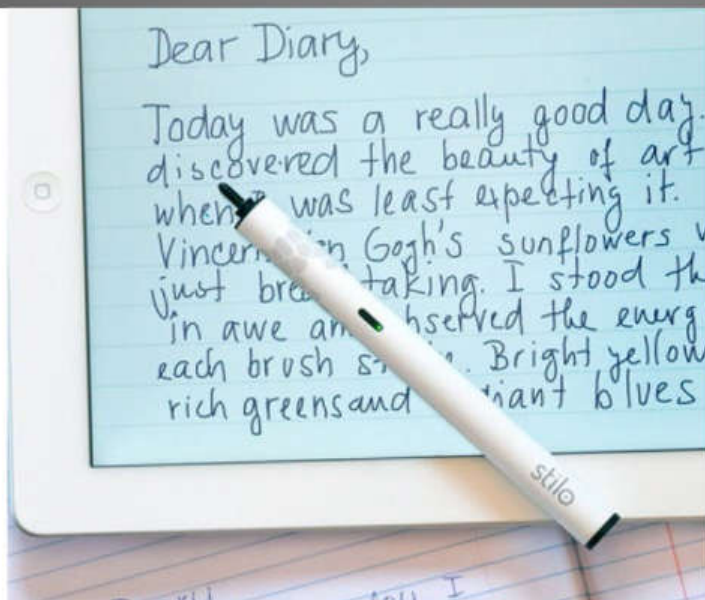 Dear Diary,
Today was a really good day.
discovered the beauty of art
when was least expecting it.
Gogh's sunflowers
just taking. I stood
in awe the
each brush Bright yellow
rich greens and blues
stilo
I